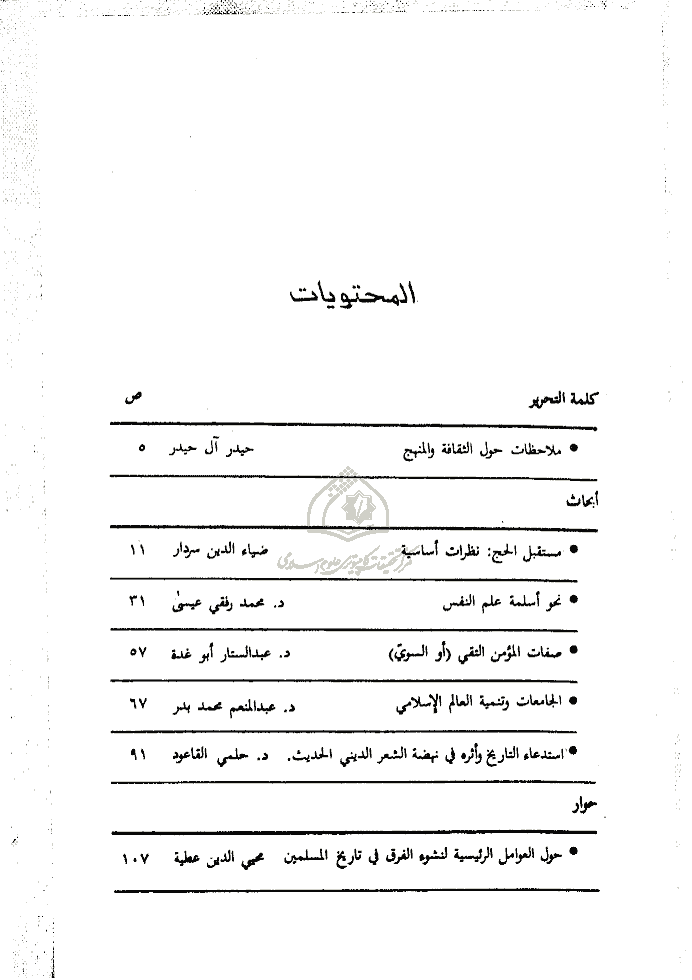 المحتويات
كلمة التحرير ص
• ملاحظات حول الثقافة والمنهج حيدر آل حيدر ٥
أبحاث
• مستقبل الحج: نظرات أساسية ضياء الدين سردار ١١
• نحو أسلمة علم النفس د. محمد رفقي عيسىٰ ٣١
• صفات المؤمن التقي (أو السويّ) د. عبدالستار أبو غدة ٥٧
• الجامعات وتنمية العالم الإسلامي د. عبدالمنعم محمد بدر ٦٧
• استدعاء التاريخ وأثره في نهضة الشعر الديني الحديث. د. حلمي القاعود ٩١
حوار
• حول العوامل الرئيسية لنشوء الفرق في تاريخ المسلمين محيي الدين عطية ١٠٧
مرکز تحقیقات کامپیوتری علوم اسلامی